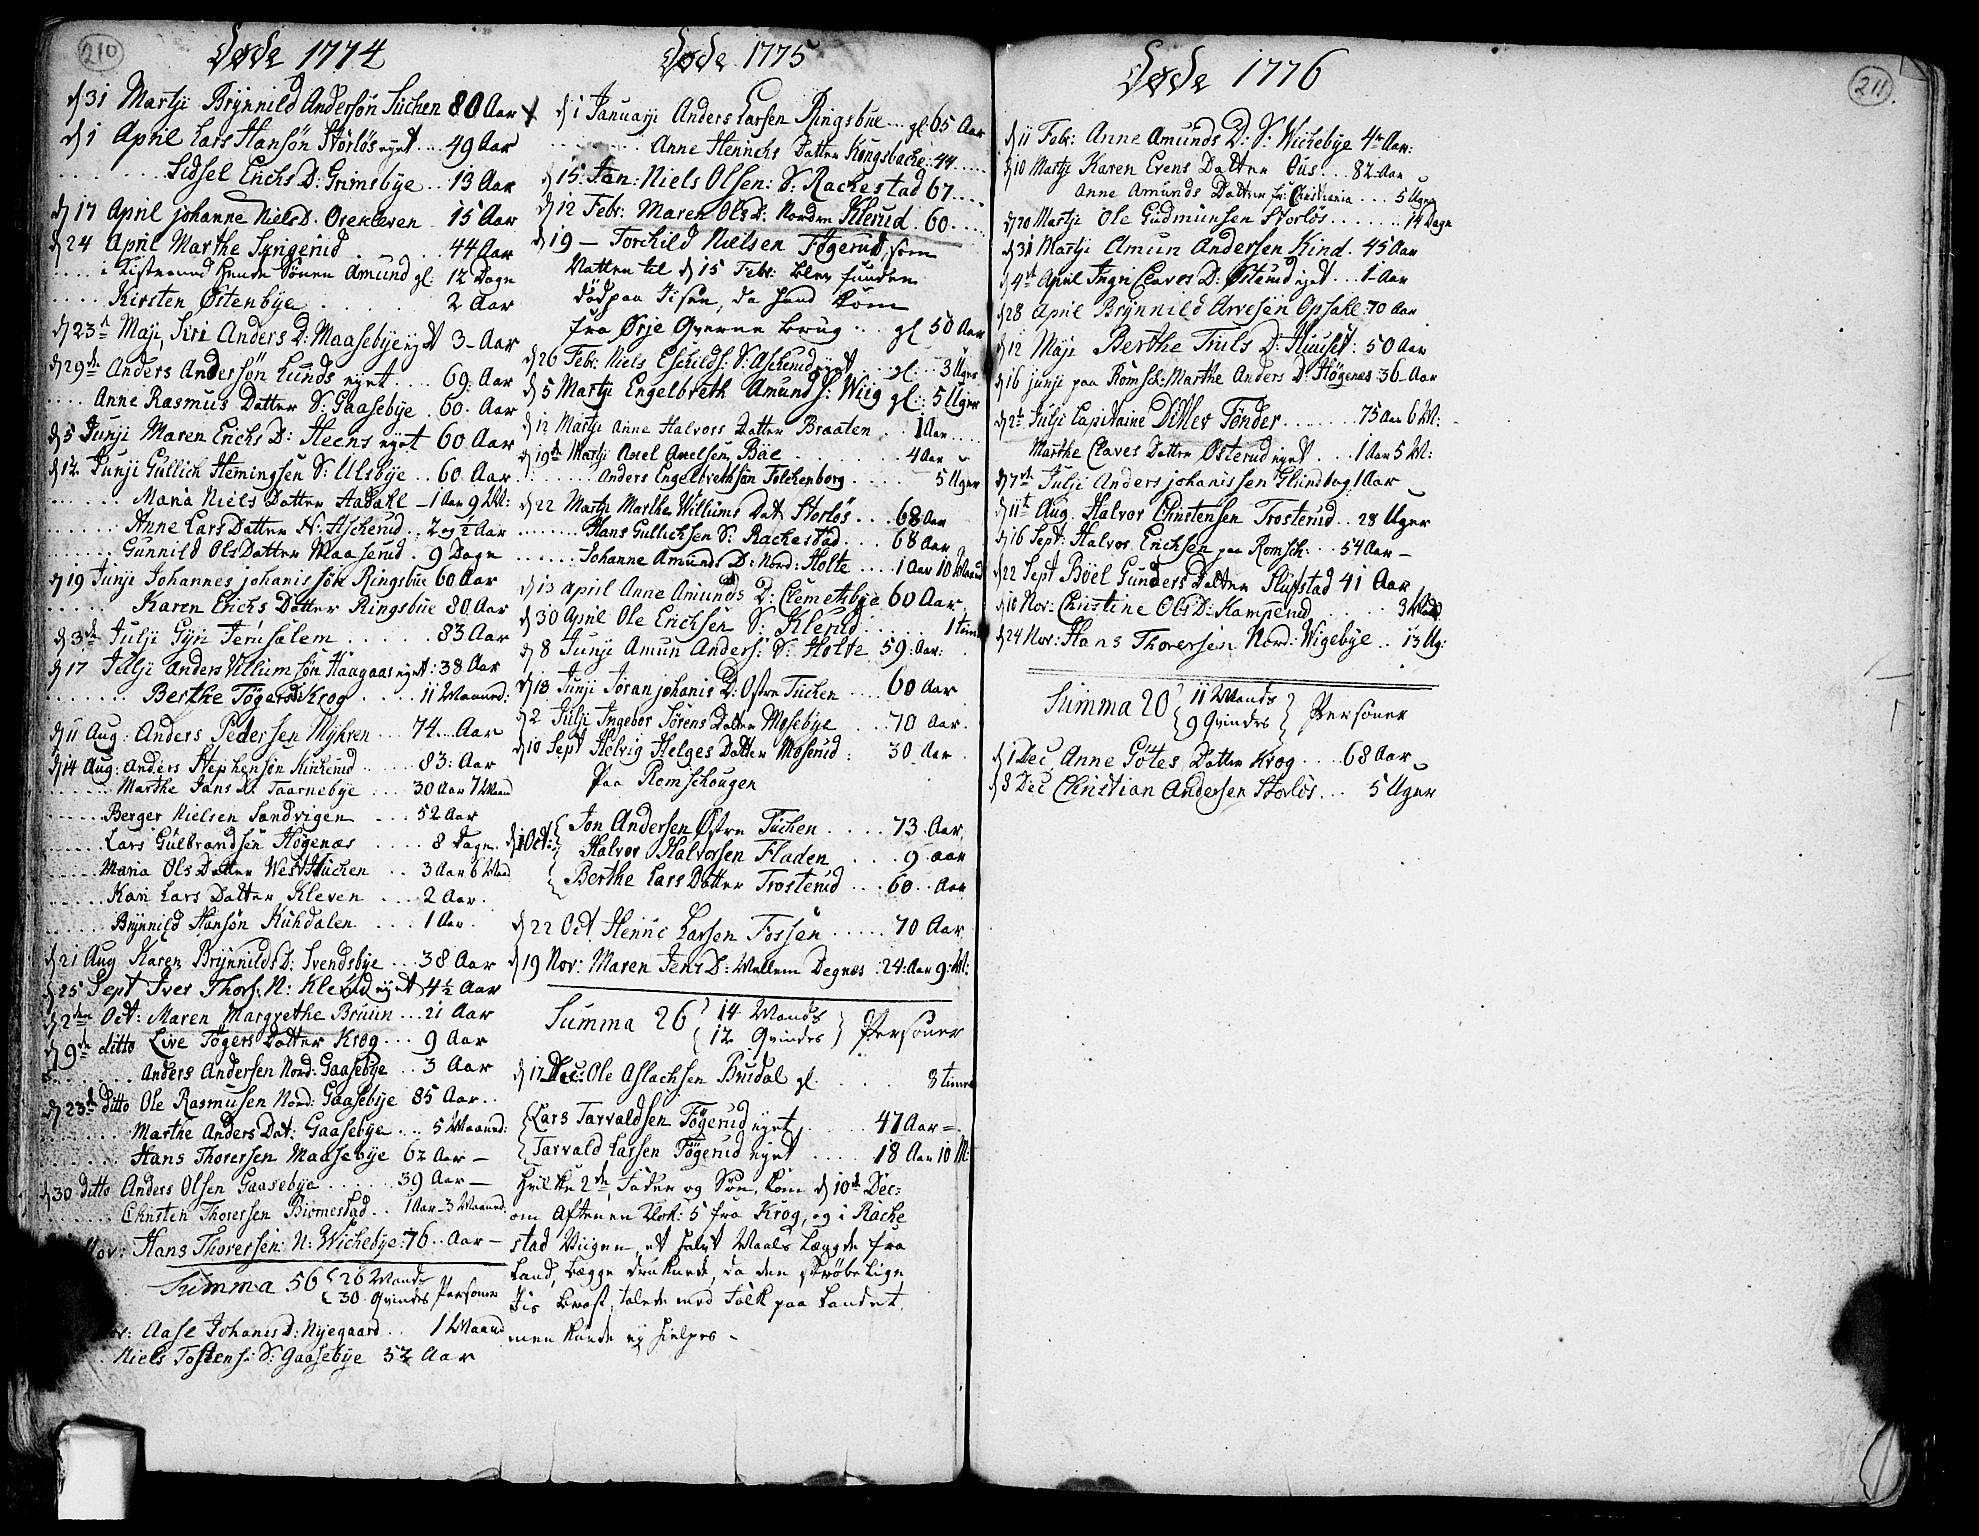 210
Døde 1774
d 31 Martji Brynnild Andersøn Tüchen 80 Aar
d 1 April Lars Hansøn Størløs eyet .... 49 Aar
Sidsel Erichs D: Grimsbye .. 13 Aar
d 17 April johanne Niels D. Osekleven . 15 Aar
d 24 April Marthe Syngerud . . . 44 Aar
i Kistrand hendes Sönen Amund gl: 12 Dage
Kirsten Østenbye . . . 2 Aar
d 23 Maji Siri Anders D: Maasebye eyet 3 - Aar
d 29de Anders Andersøn Lunds eyet .... 69: Aar
Anne Rasmus Datter S: Gaasebye . 60. Aar
d 5 Junji Maren Erichs D: Heens eyet 60 Aar
d 12. Junji Gullich Hemingsen S: Ulsbye .. 60. Aar
Maria Niels Datter Aadahl - 1 Aar 9 M:
Anne Lars Datter N: Ascherud .. 2 og ½ Aar
Gunnild Ols Datter Maaserud . 9 Dage
d 19 Junji Johannes johanissøn Ringsbüe 60 Aar
Karen Erichs Datter Ringsbüe 80. Aar
d 3de Julji Gyri Jerusalem . . . . . . 83 Aar
d 17 Julji Anders Villumsøn Haagaas eyet: 38 Aar
Berthe Tøgers D: Krog . . . . 11 Maaned:
d 11 Aug: Anders Pedersen Myhren ... 74 ... Aar
d 14 Aug: Anders Stephensøn Kirkerud ...... 83: Aar
Marthe Jans D: Taarnebye ... 30 Aar 7 Maand
Berger Nielsen Sandvigen ... 52 Aar
Lars Gulbrandsen Høgenæs ..... 8 Dage
Maria Ols Datter West Tüchen .. 3 Aar 6 Mand
Kari Lars Datter Kleven .... 2 Aar.
Brynnild Hansøn Kuhdalen .... 1 Aar.
d 21 Aug Karen Brynnilds D: Svendsbye ... 38 Aar
d 25 Sept Iver Thors: N: Klerud eyet 4½ Aar
d 2den Oct: Maren Margrethe Bruun ... 21 Aar
d 9de ditto Live Tøgers Datter Krog ... 9 Aar
Anders Andersen Nord: Gaasebye .. 3 Aar
d 23d ditto Ole Rasmusen Nord: Gaasebye 85 Aar ..
Marthe Anders Dat: Gaasebye ... 5 Maaned:
Hans Thoresen Maasebye 62 Aar -
d 30 ditto Anders Olsen Gaasebye ...... 39 Aar -
Christen Thoresen Biørnestad .. 1 Aar - 3 Maaned:
Nov: Hans Thoresen: N: Wichebye: 76 .. Aar -
Summa 56 { 26 Mands
30 Qvindes Personer
Aase Johanis D: Nyegaard .. 1 Maaned
Niels Tostens: S: Gaasebye 32 Aar
Døde 1775
d 1 Januarji Anders Larsen Ringsbüe ... gl: 65 Aar
Anne Henrichs Datter Kongsbache: 44 ....
d 15. Jan: Niels Olsen: S: Rackestad 67 ....
d 12 Febr: Maren Ols D: Nordre Klerud . 60 ....
d 19 - Torchild Nielsen Tøgerud, som
Natten til d 15 Febr: blev funden
død paa Iisen, da hand kom
fra Ørje Qværne brug ... gl 50 Aar
d 26 Febr: Niels Eschilds: S: Ascherud eyet .. gl: .. 3 Uger
d 5 Martji Engelbreth Amunds: Wiig gl: 5 Uger
d 12 Martji Anne Halvors Datter Braaten . . 1 Aar ....
d 19d Martji Axel Axelsen Bøe ....... 4 Aar
Anders Engelbrethsøn Folchenborg ..... 5 Uger
d 22 Martji Marthe Willums Dat: Storløs ... 68 Aar
Hans Gullichsen S: Rachestad .... 68 Aar
Johanne Amunds D: Nord: Holte .... 1 Aar 10 Maand
d 13 April Anne Amunds D: Clemetsbye 60 Aar
d 30 April Ole Erichsen S: Klerud ...... 1 time
d 8 Junji Amun Anders: S: Holte 59: Aar:
d 18 Junji Jøran johanis D: Østre Tüchen .... 60 Aar
d 2 Julji Ingebor Sørens Datter Mosebye .. 70 Aar.
d 10 Sept Helvig Helges Datter Moserud: 30. Aar
Paa Romschougen
d 1 Oct: { Jon Andersen Østre Tüchen ..... 73. Aar.
Halvor Halvorsen Fladen .... 9. Aar
Berthe Lars Datter Trosterud ... 60 .. Aar
d 22 Oct Henric Larsen Fossen ..... 70 Aar
d 19 Nov: Maren Jens D: Mellem Degnæs: 24: Aar 9: M:
Summa 26 { 14 Mands
12 Qvindes } Personer
d 17 Dec: Ole Aslachsen Brudal gl. .... 3 timer
{ Lars Tarvaldsen Tögerud eyet ..... 47 Aar =
{ Tarvald Larsen Tögerud eyet .... 18 Aar 10 M:
Hvilke 2de Fader og Søn, kom d 10d Dec:
om Aftenen Klok: 5 fra Krog, og i Racke
stad Viigen, et halvt Maals Længde fra
Land, begge druknede, da den skrøbelige
Iis brast, talede med Folk paa Landet
men kunde ey hielpes -
211
Døde 1776
d 11 Febr: Anne Amunds D: S: Wichebye 4 Aar:
d 10 Martji Karen Evens Datter Ous ... 82 Aar
Anne Amunds Datter fr: Christiania .... 5 Uger
d 20 Martji Ole Gudmunsen Storløs ....... 14 Dage
d 31 Martji Amun Andersen Kind . 45 Aar
d 4d April Ingri Claves D: Østerud eyet ... 1 Aar
d 28 April Brynnild Arvesen Opsahl: 70 Aar
d 12 Maji Berthe Truls D: Huuset: 50 Aar
d 16 junji paa Romsch: Marthe Anders D: Høgenæs: 36 Aar
d 2t Julji Capitaine Ditlev Tønder ....... 75 Aar 6 M:
Marthe Claves Datter Østerud eyet ... 1 Aar 5 M:
d 7d Julji Anders johanissen Glundbog 1 Aar
d 11t Aug. Halvor Christensen Trosterud .. 28 Uger
d 16 Sept: Halvor Erichsen paa Romsch: ... 54 Aar -
d 22 Sept Böel Gunders Datter Slupstad 41 Aar
d 10 Nov: Christine Ols D: Kamperud ..... 3 Maand
d 24 Nov: Hans Thoresen Nord: Wigebye .. 13 Ug:
Summa 20 { 11 Mands
9 Qvindes } Personer
d 1 Dec Anne Götes Datter Krog .... 68 Aar
d 8 Dec Christian Andersen Storløs ... 5 Uger